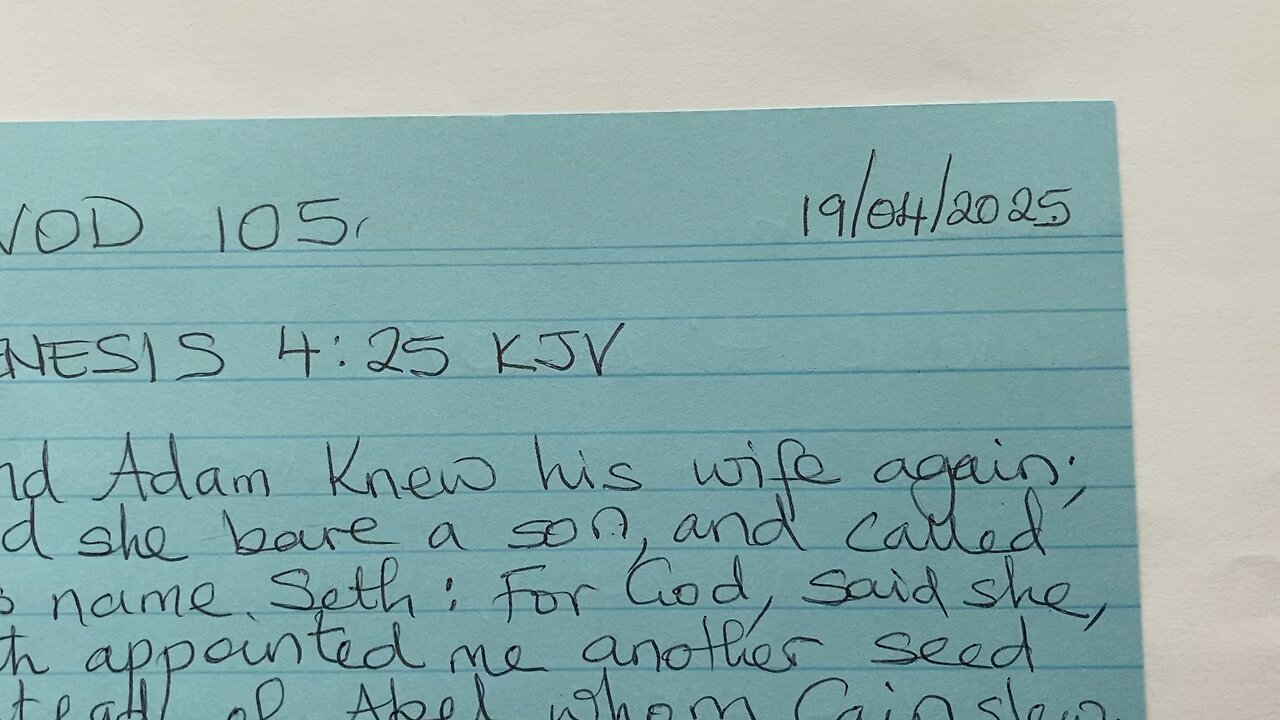 VOD 105.
19/04/2025
ENESIS 4:25 KJV
nd Adam knew his wife again;
d she bare a son, and called
s name Seth: For God, said she,
th appointed me another seed
stead of Abel whom Cain slew.